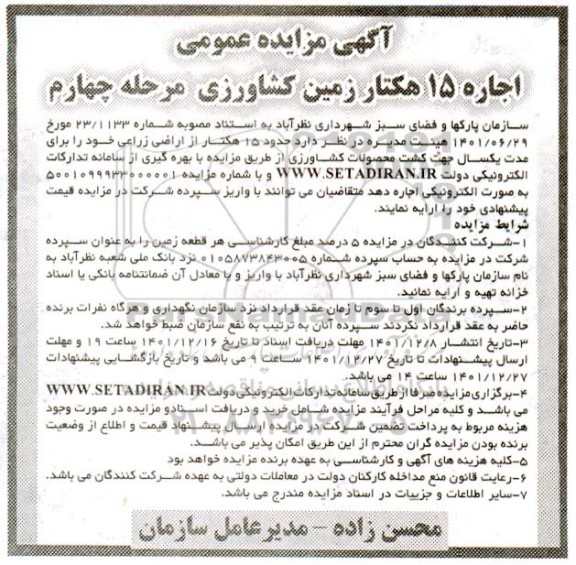 آگهی مزایده عمومی
اجاره ۱۵ هکتار زمین کشاورزی مرحله چهارم
سازمان پارکها و فضای سبز شهرداری نظرآباد به استناد مصوبه شماره ۲۳/۱۱۳۳ مورخ
۱۴۰۱/۰۶/۲۹ هیئت مدیره در نظر دارد حدود ۱۵ هکتار از اراضی زراعی خود را برای
مدت یکسال جهت کشت محصولات کشاورزی از طریق مزایده با بهره گیری از سامانه تدارکات
الکترونیکی دولت WWW.SETADIRAN.IR و با شماره مزایده ۵۰۰۱۰۹۹۹۳۳۰۰۰۰۰۱
به صورت الکترونیکی اجاره دهد متقاضیان می توانند با واریز سپرده شرکت در مزایده قیمت
پیشنهادی خود را ارایه نمایند.
شرایط مزایده
۱-شرکت کنندگان در مزایده ۵ درصد مبلغ کارشناسی هر قطعه زمین را به عنوان سپرده
شرکت در مزایده به حساب سپرده شماره ۰۱۰۵۸۷۳۸۴۳۰۰۵ نزد بانک ملی شعبه نظرآباد به
نام سازمان پارکها و فضای سبز شهرداری نظرآباد با واریز و با معادل آن ضمانتنامه بانکی یا اسناد
خزانه تهیه و ارایه نمایند.
۲-سپرده برندگان اول تا سوم تا زمان عقد قرارداد نزد سازمان نگهداری و هرگاه نفرات برنده
حاضر به عقد قرارداد نگردند سپرده آنان به ترتیب به نفع سازمان ضبط خواهد شد.
۳-تاریخ انتشار ۱۴۰۱/۱۲/۸ مهلت دریافت اسناد تا تاریخ ۱۴۰۱/۱۲/۱۶ ساعت ۱۹ و مهلت
ارسال پیشنهادات تا تاریخ ۱۴۰۱/۱۲/۲۷ ساعت ۹ می باشد و تاریخ بازگشایی پیشنهادات
۱۴۰۱/۱۲/۲۷ ساعت ۱۴ می باشد.
۴-برگزاری مزایده صرفا از طریق سامانه تدارکات الکترونیکی دولت WWW.SETADIRAN.IR
می باشد و کلیه مراحل فرآیند مزایده شامل خرید و دریافت اسناد و مزایده در صورت وجود
هزینه مربوط به پرداخت تضمین شرکت در مزایده ارسال پیشنهاد قیمت و اطلاع از وضعیت
برنده بودن مزایده گران محترم از این طریق امکان پذیر می باشد.
۵-کلیه هزینه های آگهی و کارشناسی به عهده برنده مزایده خواهد بود
۶-رعایت قانون منع مداخله کارکنان دولت در معاملات دولتی به عهده شرکت کنندگان می باشد.
۷-سایر اطلاعات و جزییات در اسناد مزایده مندرج می باشد.
محسن زاده - مدیرعامل سازمان